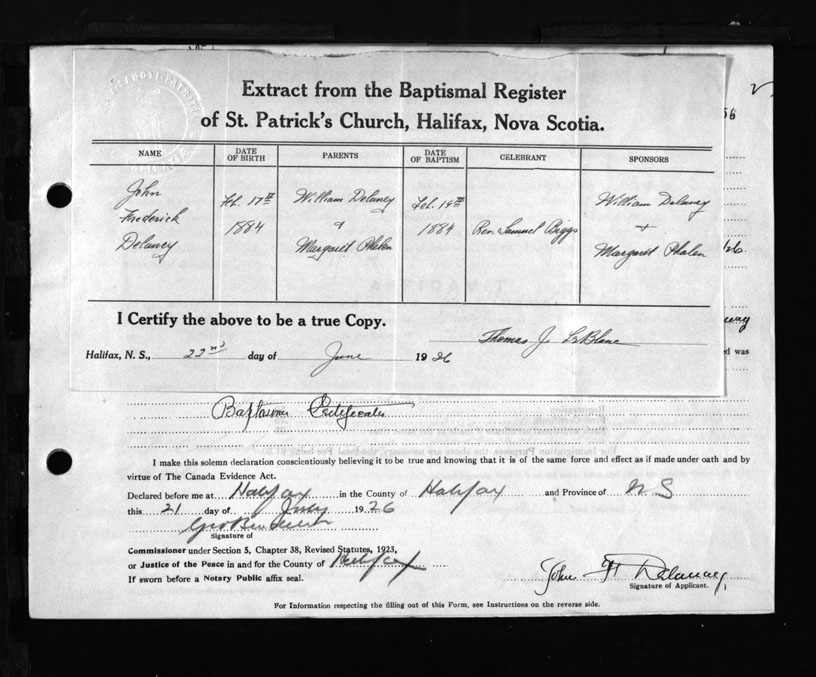 Extract from the Baptismal Register
of St. Patrick's Church, Halifax, Nova Scotia.
NAME DATE OF BIRTH PARENTS DATE OF BAPTISM CELEBRANT SPONSORS
John Feb. 17th William Delaney Feb. 19th William Delaney
Frederick 1884 & 1884 Rev. Samuel Biggs +
Delaney Margaret Phalen Margaret Phalen
I Certify the above to be a true Copy.
Thomas J. LeBlanc
Halifax, N. S., 22nd day of June 1926
Baptismal Certificate
I make this solemn declaration conscientiously believing it to be true and knowing that it is of the same force and effect as if made under oath and by
virtue of The Canada Evidence Act.
Declared before me at Halifax in the County of Halifax and Province of N S
this 21 day of July 1926
Signature of
Commissioner under Section 5, Chapter 38, Revised Statutes, 1923,
or Justice of the Peace in and for the County of Halifax
If sworn before a Notary Public affix seal.
John F Delaney
Signature of Applicant.
For Information respecting the filling out of this Form, see Instructions on the reverse side.